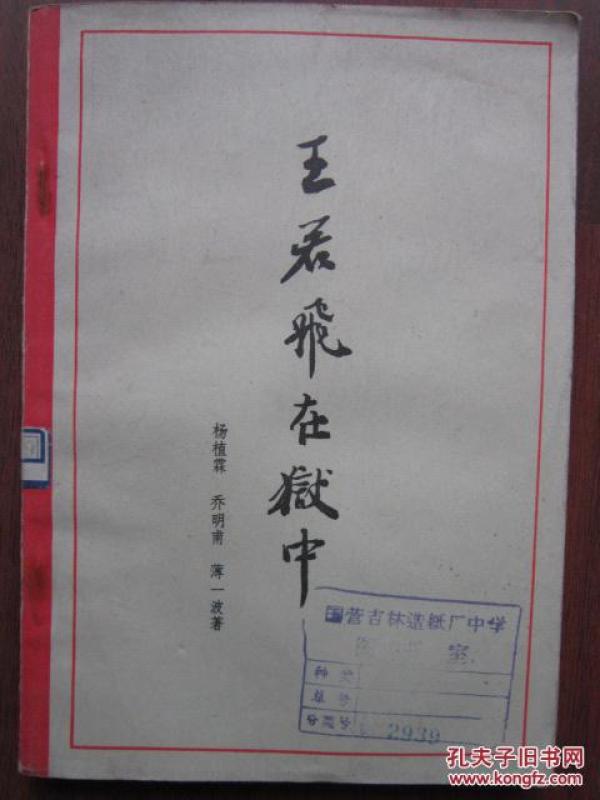 王若飛在獄中
杨植霖 乔明甫 薄一波著
国营吉林造纸厂中学
室
种类
单号
分类号
2939
孔夫子旧书网
www.kongfz.com